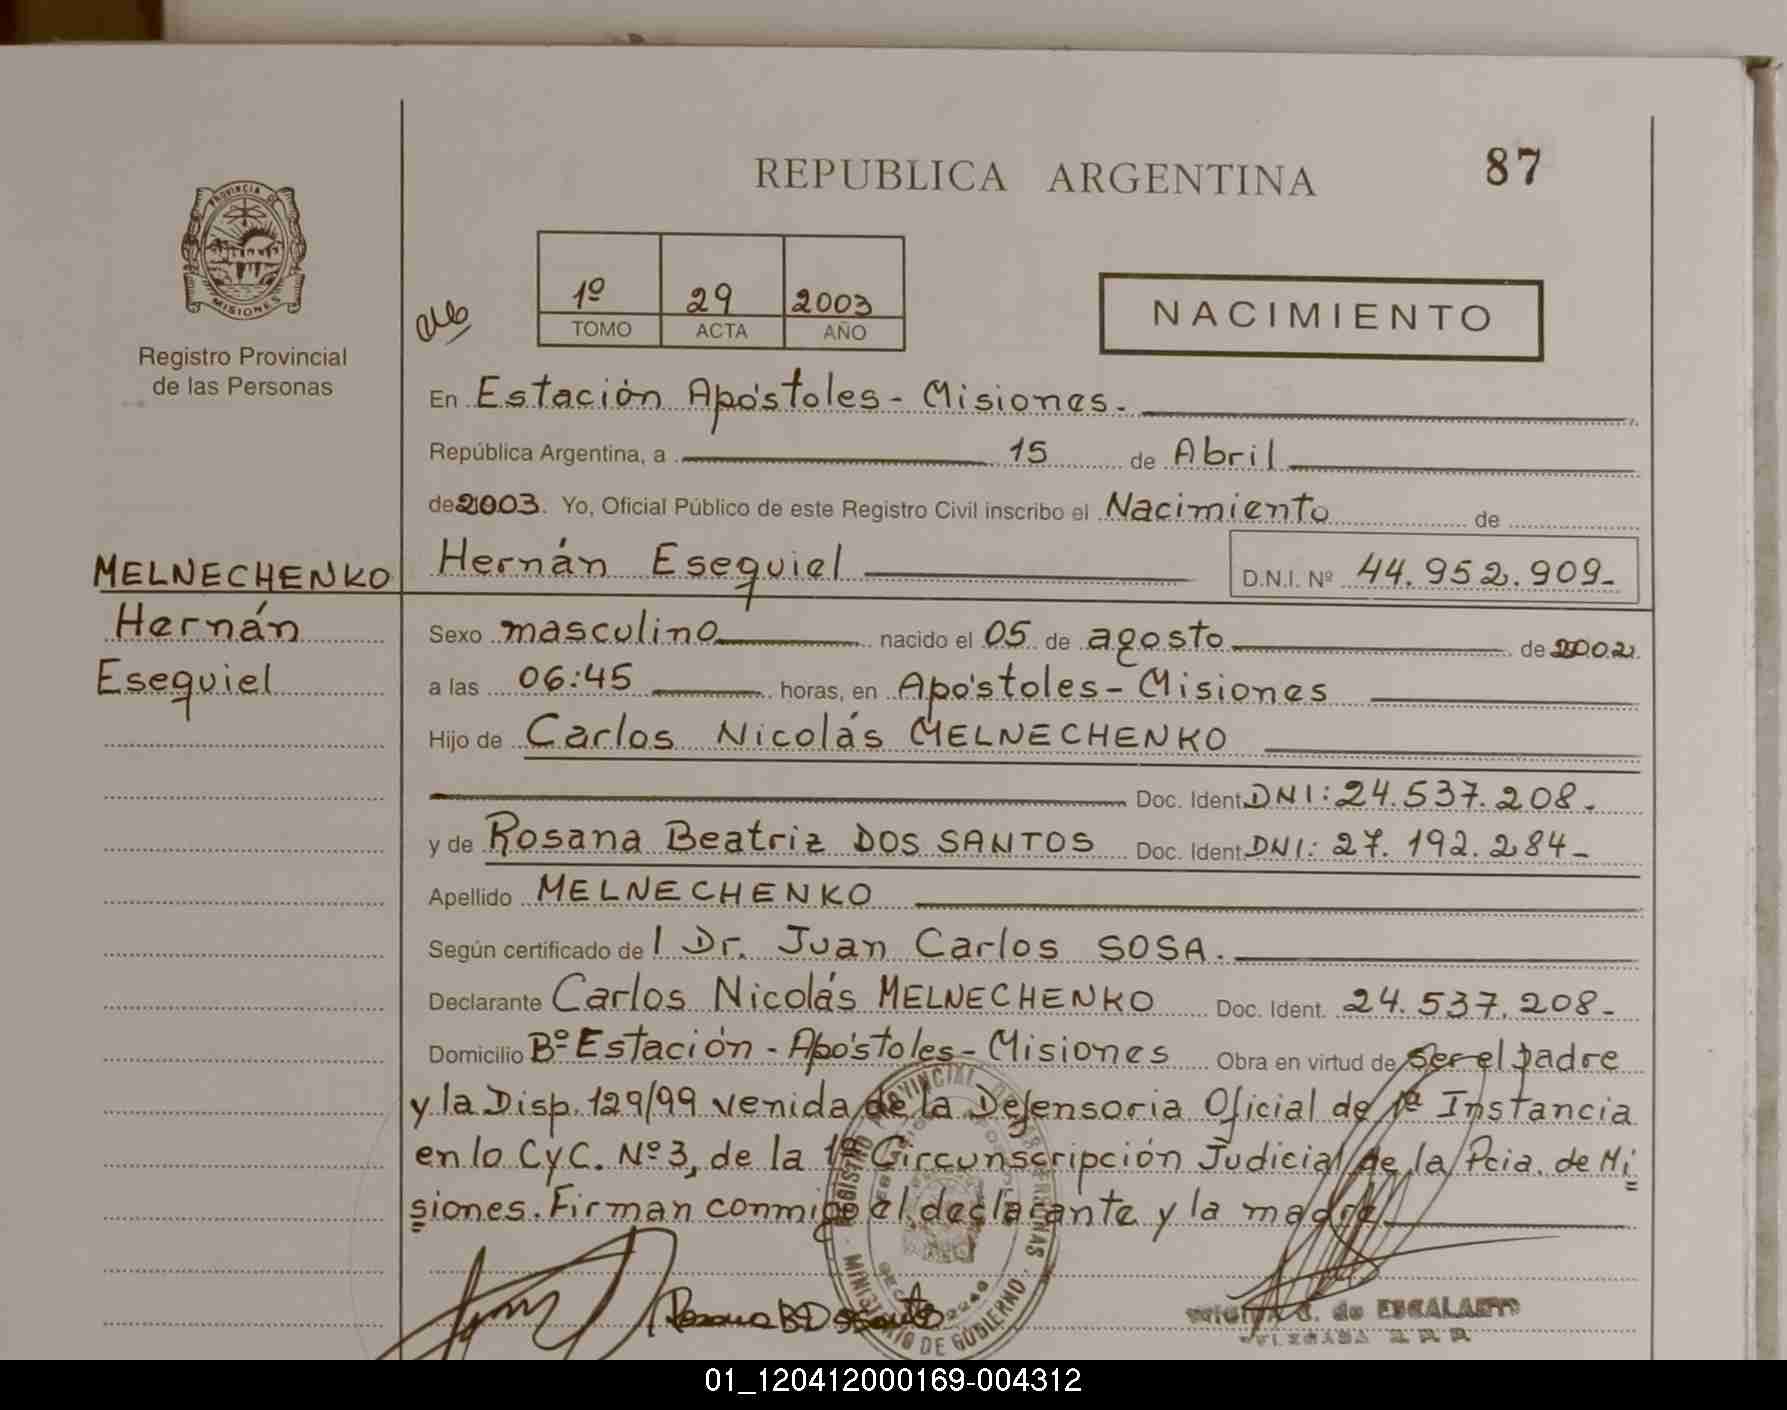 REPUBLICA ARGENTINA
87
PROVINCIA DE
MISIONES
Registro Provincial
de las Personas
1º 29 2003
TOMO ACTA AÑO
NACIMIENTO
En Estación Apóstoles - Misiones.
República Argentina, a 15 de Abril
de 2003. Yo, Oficial Público de este Registro Civil inscribo el Nacimiento de
MELNECHENKO
Hernán
Esequiel
Hernán Esequiel D.N.I. Nº 44.952.909-
Sexo masculino nacido el 05 de agosto de 2002
a las 06:45 horas, en Apóstoles - Misiones
Hijo de Carlos Nicolás MELNECHENKO
Doc. Ident. DNI: 24.537.208-
y de Rosana Beatriz DOS SANTOS Doc. Ident. DNI: 27.192.284-
Apellido MELNECHENKO
Según certificado de l Dr. Juan Carlos SOSA.
Declarante Carlos Nicolás MELNECHENKO Doc. Ident. 24.537.208-
Domicilio Bº Estación - Apóstoles - Misiones Obra en virtud de ser el padre
y la Disp. 129/99 venida de la Defensoria Oficial de 1ª Instancia
en lo CyC. Nº 3, de la 1ª Circunscripción Judicial de la Pcia. de Mi
siones. Firman conmigo el declarante y la madre
MINISTERIO DE GOBIERNO
C. de ESCALANTE
01_120412000169-004312